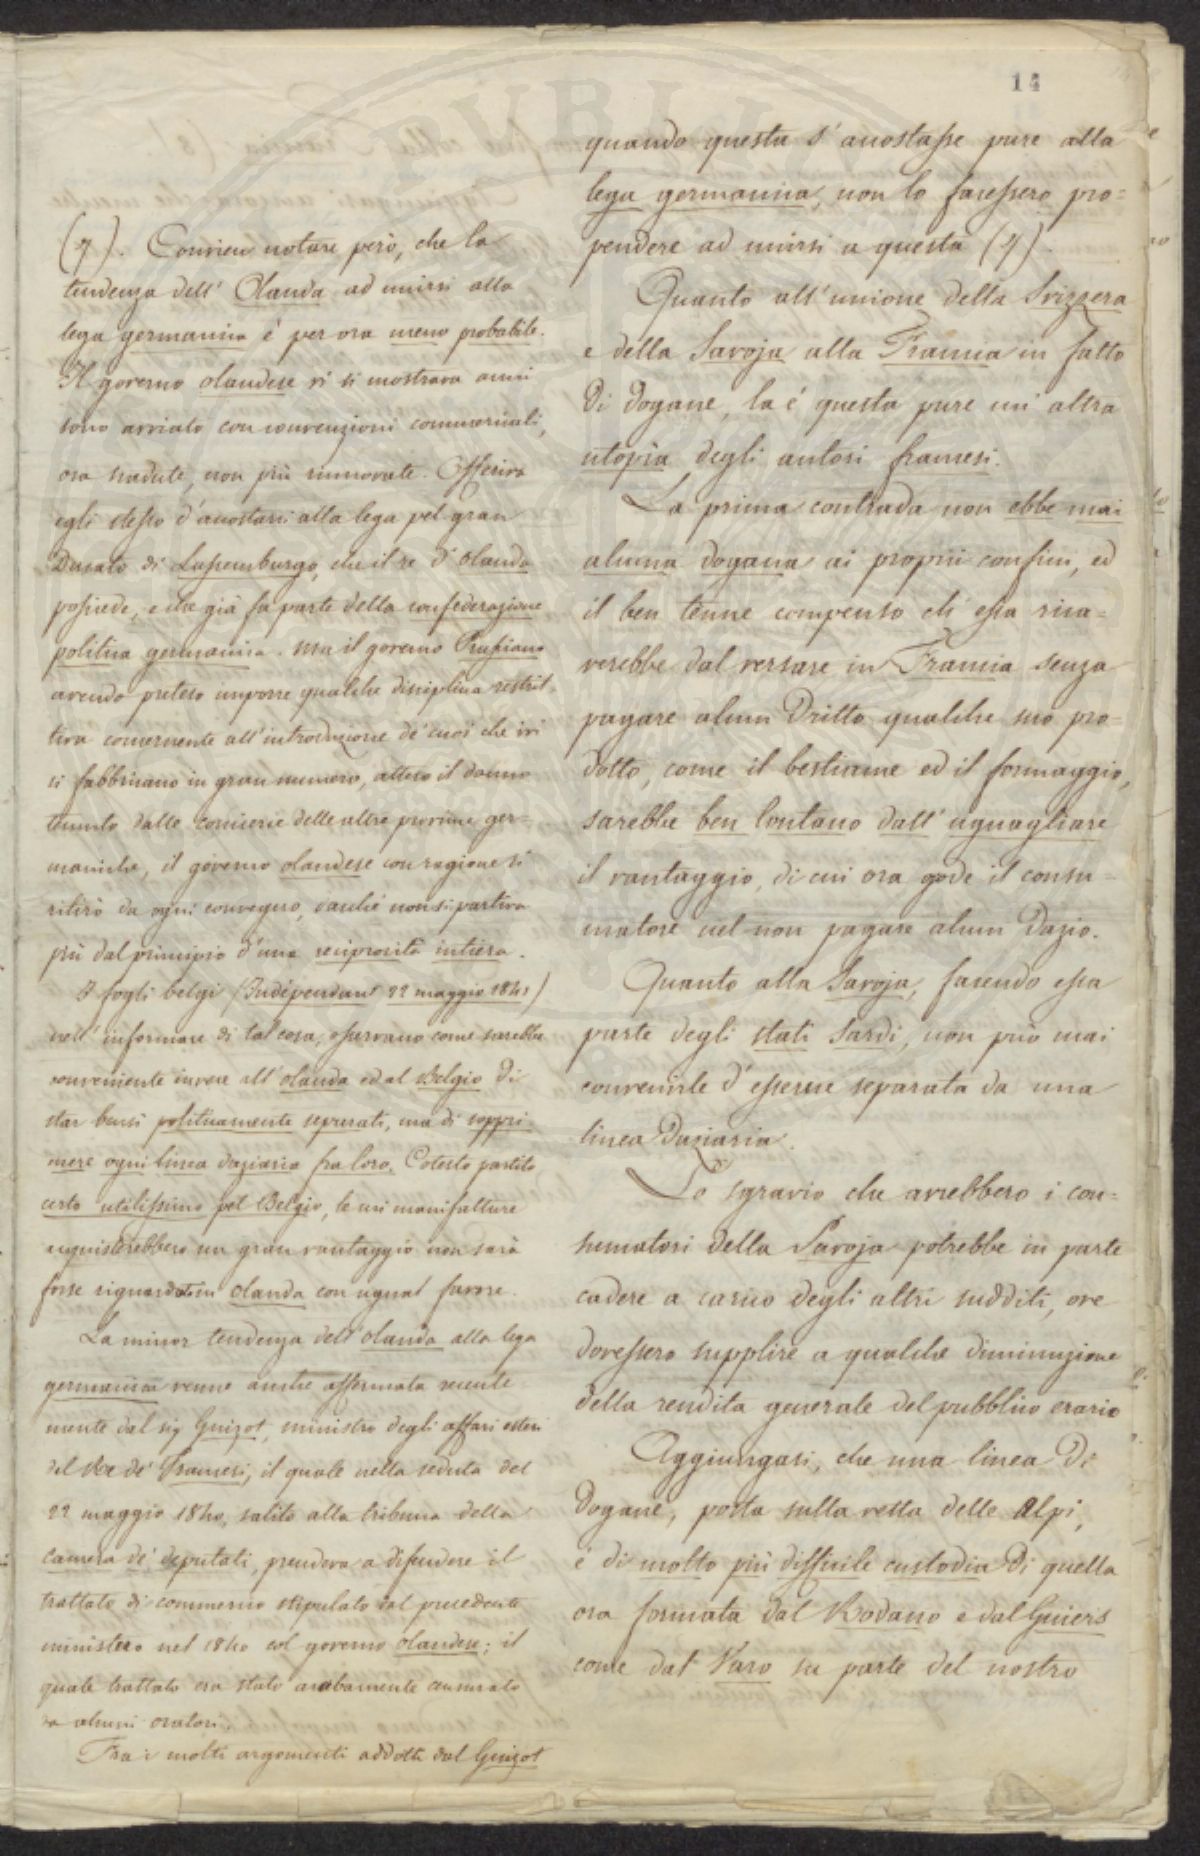 14
quando questa s'accostasse pure alla
lega germanica, non lo facessero pro=
pendere ad unirsi a questa (7).
Quanto all'unione della Svizzera
e della Savoja alla Francia in fatto
di dogane, la é questa pure un'altra
utopìa degli autori francesi.
La prima contrada non ebbe mai
alcuna dogana ai proprii confini, ed
il ben tenue compenso ch'essa rica=
verebbe dal versare in Francia senza
pagare alcun dritto qualche suo pro=
dotto, come il bestiame ed il formaggio,
sarebbe ben lontano dall'uguagliare
il vantaggio, di cui ora gode il consu=
matore nel non pagare alcun Dazio.
Quanto alla Savoja, facendo essa
parte degli stati Sardi, non può mai
convenirle d'esserne separata da una
linea Daziaria.
Lo sgravio che avrebbero i con=
sumatori della Savoja potrebbe in parte
cadere a carico degli altri sudditi, ove
dovessero supplire a qualche diminuzione
della rendita generale del pubblico erario
Aggiungasi, che una linea di
Dogane, posta sulla vetta delle Alpi,
é di molto più difficile custodia di quella
ora formata dal Rodano e dal Guiers
come dal Varo su parte del nostro
(7). Convien notare però, che la
tendenza dell'Olanda ad unirsi alla
lega germanica é per ora meno probabile.
Il governo olandese vi si mostrava anni
sono avviato con convenzioni commerciali,
ora scadute, non più rinnovate. Offeriva
egli stesso d'accostarsi alla lega pel gran
Ducato di Lussemburgo, che il re d'Olanda
possiede, e che già fa parte della confederazione
politica germanica. Ma il governo Prussiano
avendo preteso imporre qualche disciplina restrit=
tiva concernente all'introduzione de' cuoi che ivi
si fabbricano in gran numero, atteso il danno
temuto dalle concierie delle altre provincie ger=
maniche, il governo olandese con ragione si
ritirò da ogni convegno, dacché non si partiva
più dal principio d'una reciprocità intiera.
I fogli belgi (Indépendant 22 maggio 1841)
nell'informare di tal cosa, osservano come sarebbe
conveniente invece all'olanda ed al Belgio di
star bensì politicamente separati, ma di soppri=
mere ogni linea daziaria fra loro. Cotesto partito
certo utilissimo pel Belgio, le cui manifatture
acquisterebbero un gran vantaggio non sarà
forse riguardato in olanda con ugual favore.
La minor tendenza dell'olanda alla lega
germanica venne anche affermata recente=
mente dal sig Guizot, ministro degli affari esteri
del Re de' Francesi, il quale nella seduta del
22 maggio 1840, salito alla tribuna della
camera de' deputati, prendeva a difendere il
trattato di commercio stipulato dal precedente
ministero nel 1840 col governo olandese; il
quale trattato era stato acerbamente censurato
da alcuni oratori.
Fra i molti argomenti addotti dal Guizot